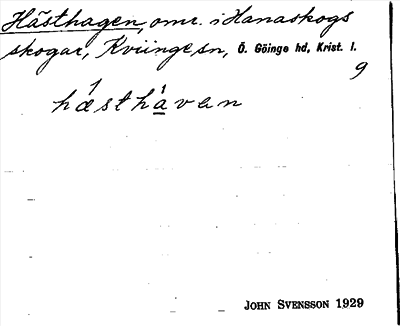 Hästhagen, omr. i Hanaskogs
skogar, Kviinge sn, Ö. Göinge hd, Krist. l.
9
hǽsthàvan
JOHN SVENSSON 1929